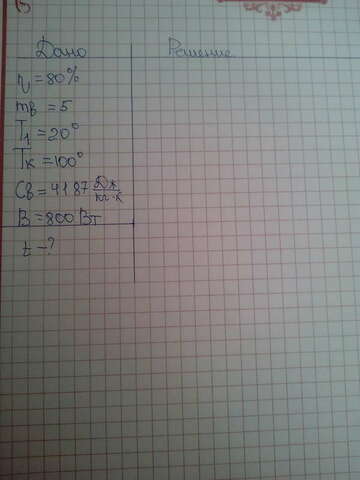 Дано Решение
η = 80%
mв = 5
T1 = 20°
Tк = 100°
Cв = 4187 Дж/кг·К
В = 800 Вт
t - ?